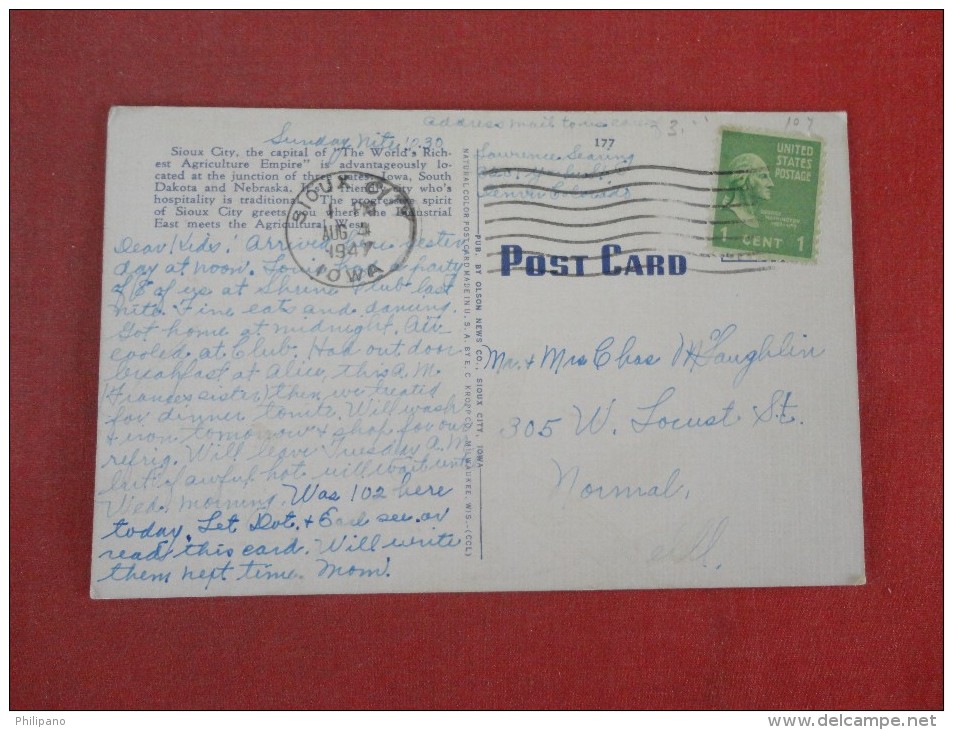 Address mail to us care
Sunday Nite 10.30
Sioux City, the capital of "The World's Rich-
est Agriculture Empire" is advantageously lo-
cated at the junction of three states, Iowa, South
Dakota and Nebraska. friendly city who's
hospitality is traditional. The progressive spirit
of Sioux City greets you where the Industrial
East meets the Agricultural West.
SIOUX CITY
AUG 4
1947
IOWA
Dear Kids: Arrived yester
day at noon. party
of 8 of us at Shrine Club last
nite. Fine eats and dancing.
Got home at midnight. Air
cooled at Club. Had out door
breakfast at Alice, this A.M.
(Frances sister) then we treated
for dinner tonite. Will wash
& iron tomorrow & shop for our
refrig. Will leave Tuesday A.M.
but if awful hot will wait until
Wed. morning. Was 102 here
today. Let Dot. & Earl see or
read this card. Will write
them next time. Mom.
NATURAL COLOR POST CARD MADE IN U.S.A. BY E. C. KROPP CO., MILWAUKEE, WIS.-(CCL)
PUB. BY OLSON NEWS CO., SIOUX CITY, IOWA
177
Lawrence Searing
Denver Colorado
POST CARD
UNITED
STATES
POSTAGE
1 CENT 1
Mr. & Mrs Chas McLaughlin
305 W. Locust St.
Normal,
Ill.
Philipano
delcampe.net